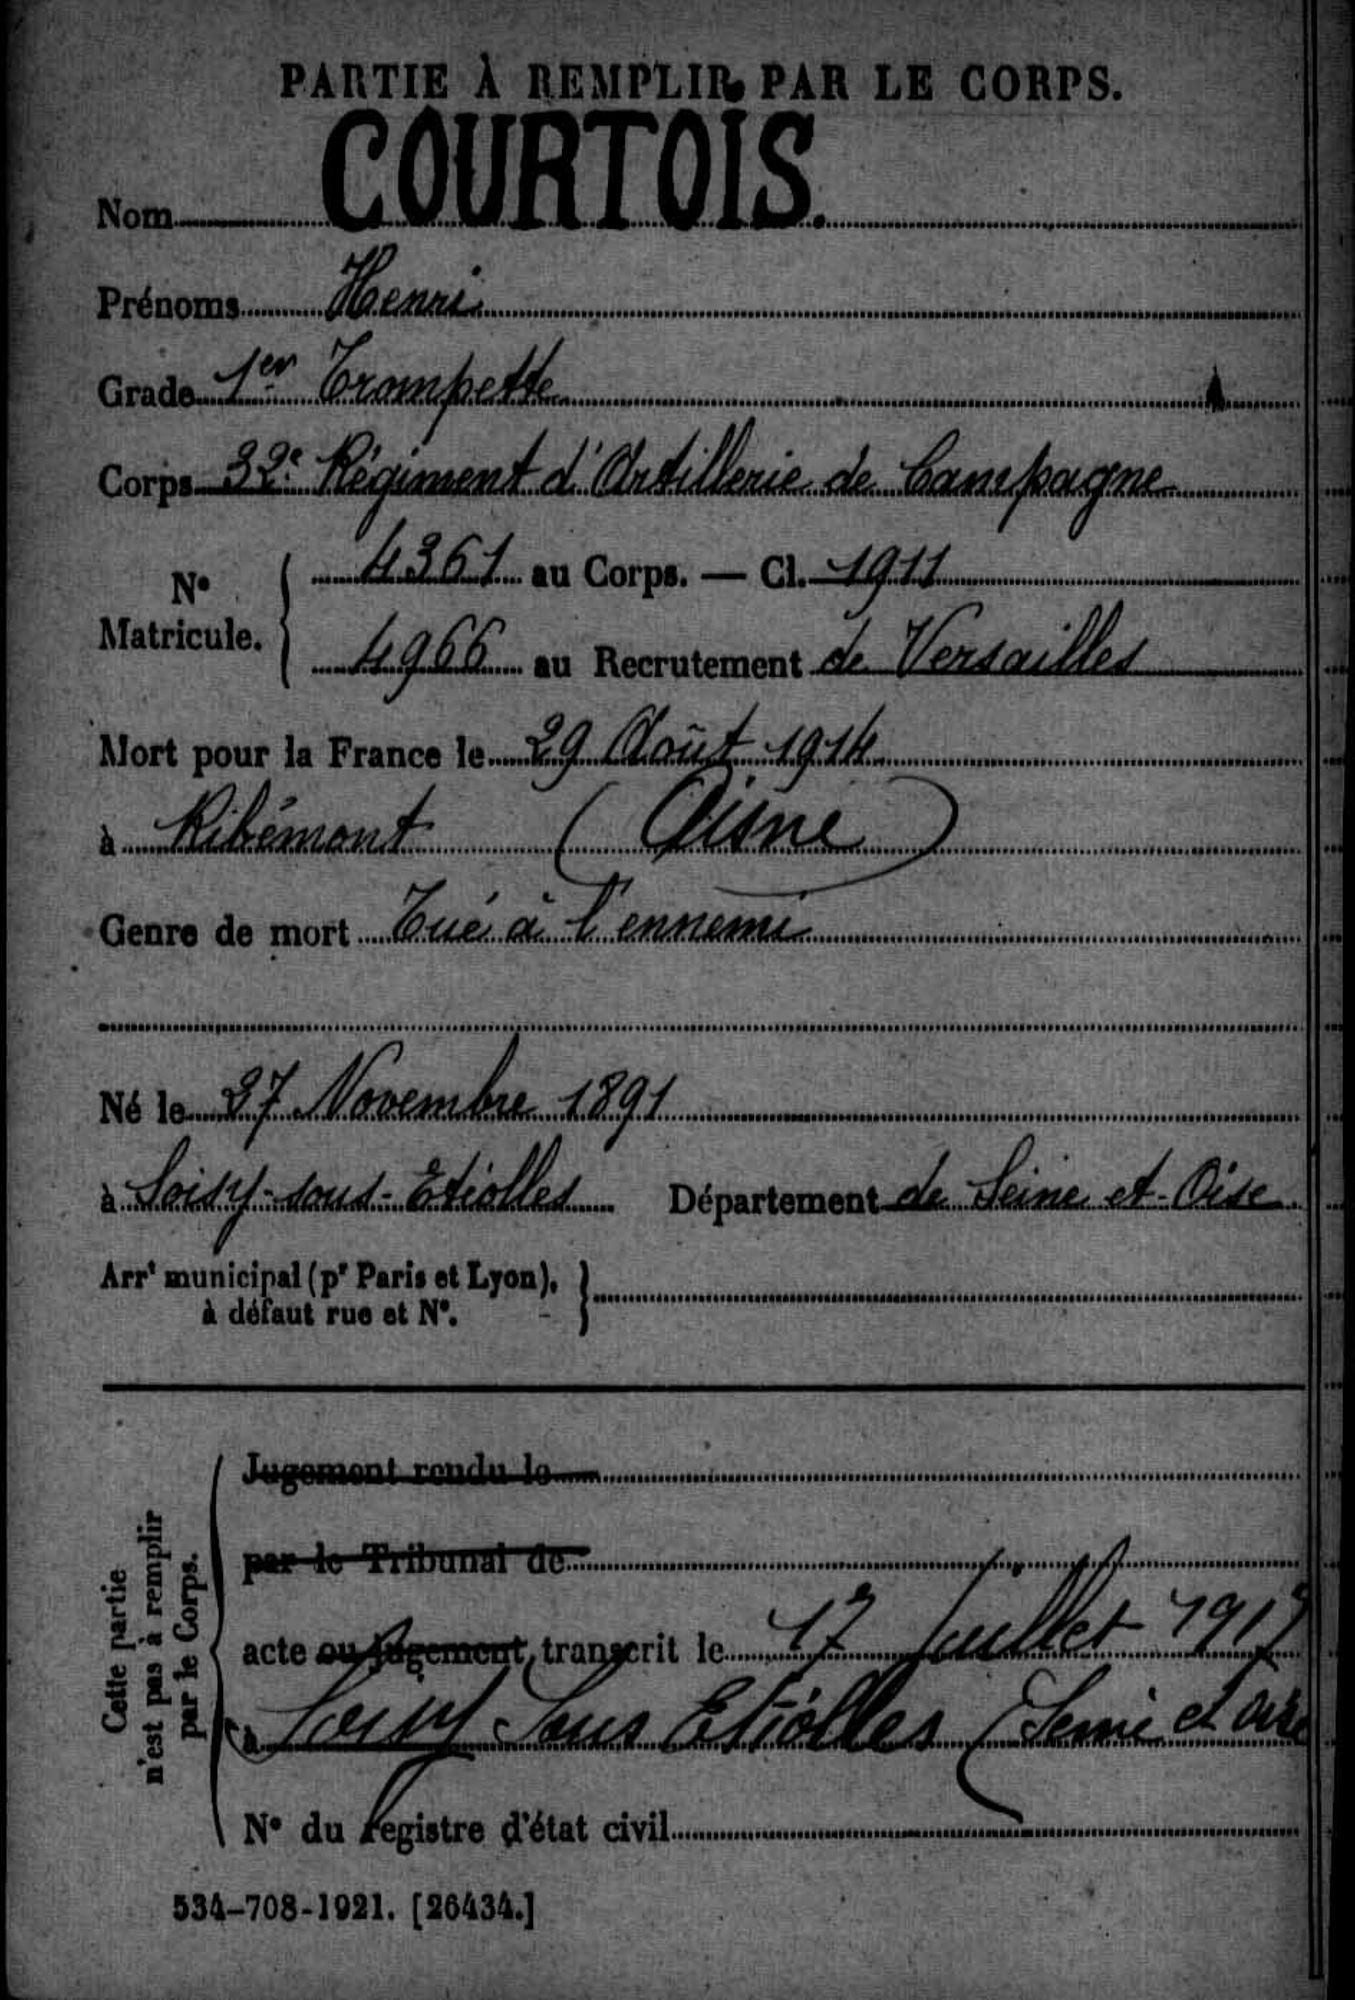 PARTIE À REMPLIR PAR LE CORPS.
Nom COURTOIS.
Prénoms Henri
Grade 1er Trompette
Corps 32e Régiment d'Artillerie de Campagne
No Matricule. { 4361 au Corps. — Cl. 1911
4966 au Recrutement de Versailles
Mort pour la France le 29 Août 1914
à Ribémont (Aisne)
Genre de mort Tué à l'ennemi
Né le 27 Novembre 1891
à Soisy-sous-Etiolles Département de Seine et-Oise
Arrt municipal (pr Paris et Lyon), }
à défaut rue et No.
Cette partie
n'est pas à remplir
par le Corps.
Jugement rendu le
par le Tribunal de
acte ou jugement transcrit le 17 Juillet 1917
à Soisy Sous Etiolles (Seine et Oise
No du registre d'état civil
534-708-1921. [26434.]